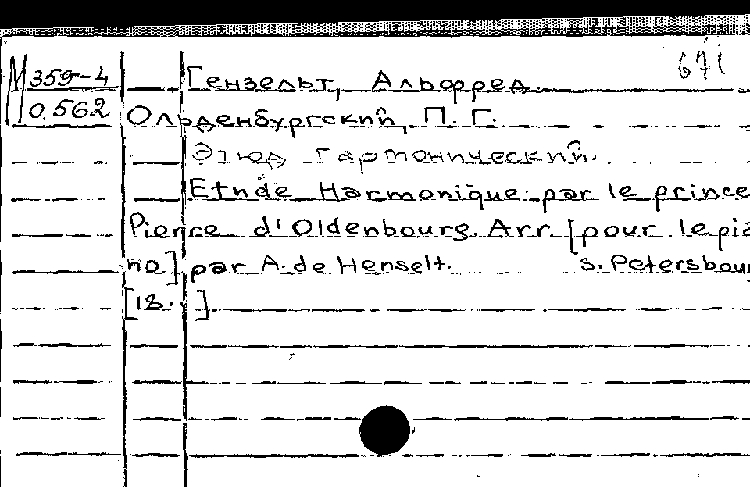 М 359-4 Гензельт, Альфред 671
0.562 Ольденбургский, П. Г.
Этюд гармонический.
Etude Harmonique par le prince
Pierre d'Oldenbourg. Arr [pour le pia
no] par A. de Henselt. S. Petersbour
[18..]